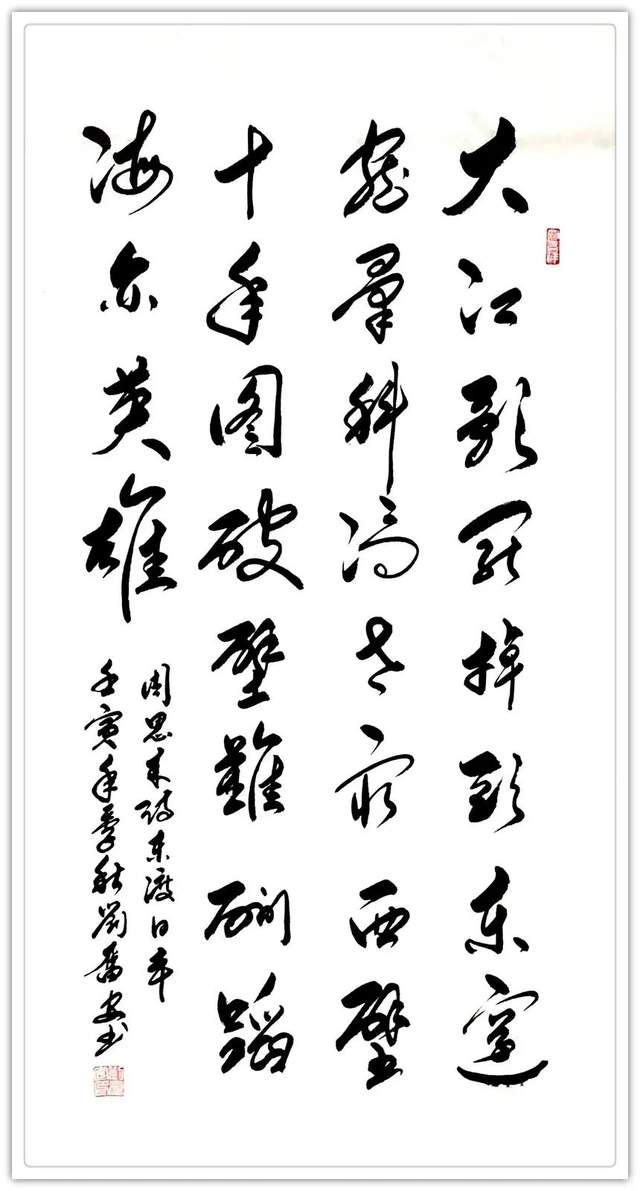 大江歌罢掉頭东邃
密羣科济世穷面壁
十年图破壁難酬蹈
海亦英雄
周恩来诗东渡日本
壬寅年季秋劉奮安书